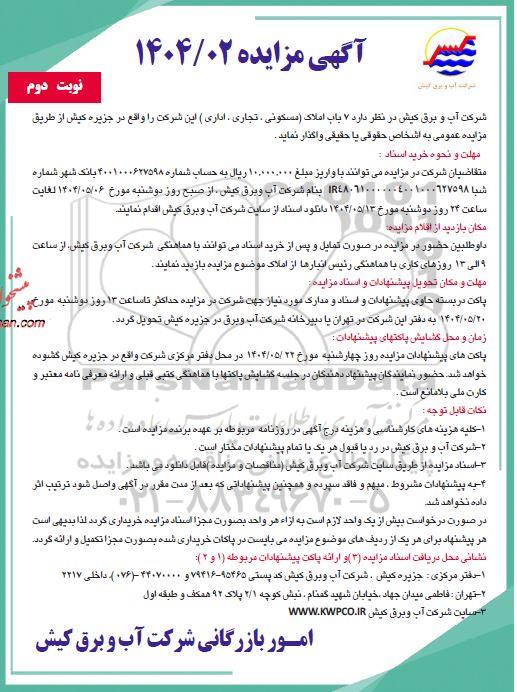 آگهی مزایده ۱۴۰۴/۰۲
شرکت آب و برق کیش
نوبت دوم
شرکت آب و برق کیش در نظر دارد ۷ باب املاک (مسکونی ، تجاری ، اداری ) این شرکت را واقع در جزیره کیش از طریق
مزایده عمومی به اشخاص حقوقی یا حقیقی واگذار نماید .
مهلت و نحوه خرید اسناد :
متقاضیان شرکت در مزایده می توانند با واریز مبلغ ۱۰,۰۰۰,۰۰۰ ریال به حساب شماره ۴۰۰۱۰۰۰۶۲۷۵۹۸ بانک شهر شماره
شبا IR۴۸۰۶۱۰۰۰۰۰۰۴۰۰۱۰۰۰۶۲۷۵۹۸ بنام شرکت آب وبرق کیش ، از صبح روز دوشنبه مورخ ۱۴۰۴/۰۵/۰۶ لغایت
ساعت ۲۴ روز دوشنبه مورخ ۱۴۰۴/۰۵/۱۳ دانلود اسناد از سایت شرکت آب وبرق کیش اقدام نمایند.
مکان بازدید از اقلام مزایده:
داوطلبین حضور در مزایده در صورت تمایل و پس از خرید اسناد می توانند با هماهنگی شرکت آب وبرق کیش، از ساعت
۹ الی ۱۳ روزهای کاری با هماهنگی رئیس انبارها از املاک موضوع مزایده بازدید نمایند .
مهلت و مکان تحویل پیشنهادات و اسناد مزایده :
پاکت دربسته حاوی پیشنهادات و اسناد و مدارک مورد نیاز جهت شرکت در مزایده حداکثر تاساعت ۱۳ روز دوشنبه مورخ
۱۴۰۴/۰۵/۲۰ به دفتر این شرکت در تهران یا دبیرخانه شرکت آب وبرق در جزیره کیش تحویل گردد .
زمان و محل گشایش پاکتهای پیشنهادات :
پاکت های پیشنهادات مزایده روز چهارشنبه مورخ ۱۴۰۴/۰۵/۲۲ در محل دفتر مرکزی شرکت واقع در جزیره کیش گشوده
خواهد شد. حضور نمایندگان پیشنهاد دهندگان در جلسه گشایش پاکتها با هماهنگی کتبی قبلی و ارائه معرفی نامه معتبر و
کارت ملی بلامانع است .
نکات قابل توجه :
۱-کلیه هزینه های کارشناسی و هزینه درج آگهی در روزنامه مربوطه بر عهده برنده مزایده است .
۲-شرکت آب و برق کیش در رد یا قبول هر یک یا تمام پیشنهادات مختار است .
۳-اسناد مزایده از طریق سایت شرکت آب وبرق کیش (مناقصات و مزایده )قابل دانلود می باشد.
۴-به پیشنهادات مشروط ، مبهم و فاقد سپرده و همچنین پیشنهاداتی که بعد از مدت مقرر در آگهی واصل شود ترتیب اثر
داده نخواهد شد.
در صورت درخواست بیش از یک واحد لازم است به ازاء هر واحد بصورت مجزا اسناد مزایده خریداری گردد لذا بدیهی است
هر پیشنهاد برای هر یک از ردیف های موضوع مزایده می بایست در پاکات خریداری شده بصورت مجزا تکمیل و ارائه گردد.
نشانی محل دریافت اسناد مزایده (۳)و ارائه پاکت پیشنهادات مربوطه (۱ و ۲) :
۱-دفتر مرکزی : جزیره کیش . شرکت آب وبرق کیش کد پستی ۹۵۴۶۵-۷۹۴۱۶ و ۴۴۰۷۰۰۰۰ (۰۷۶)، داخلی ۲۲۱۷
۲-تهران : فاطمی میدان جهاد ،خیابان شهید گمنام ، نبش کوچه ۲/۱ پلاک ۹۲ همکف و طبقه اول
۳-سایت شرکت آب وبرق کیش WWW.KWPCO.IR
امــور بازرگانی شرکت آب و برق کیش
ParsNamadData
۰۲۱-۸۸۳۴۹۶۷۰-۵